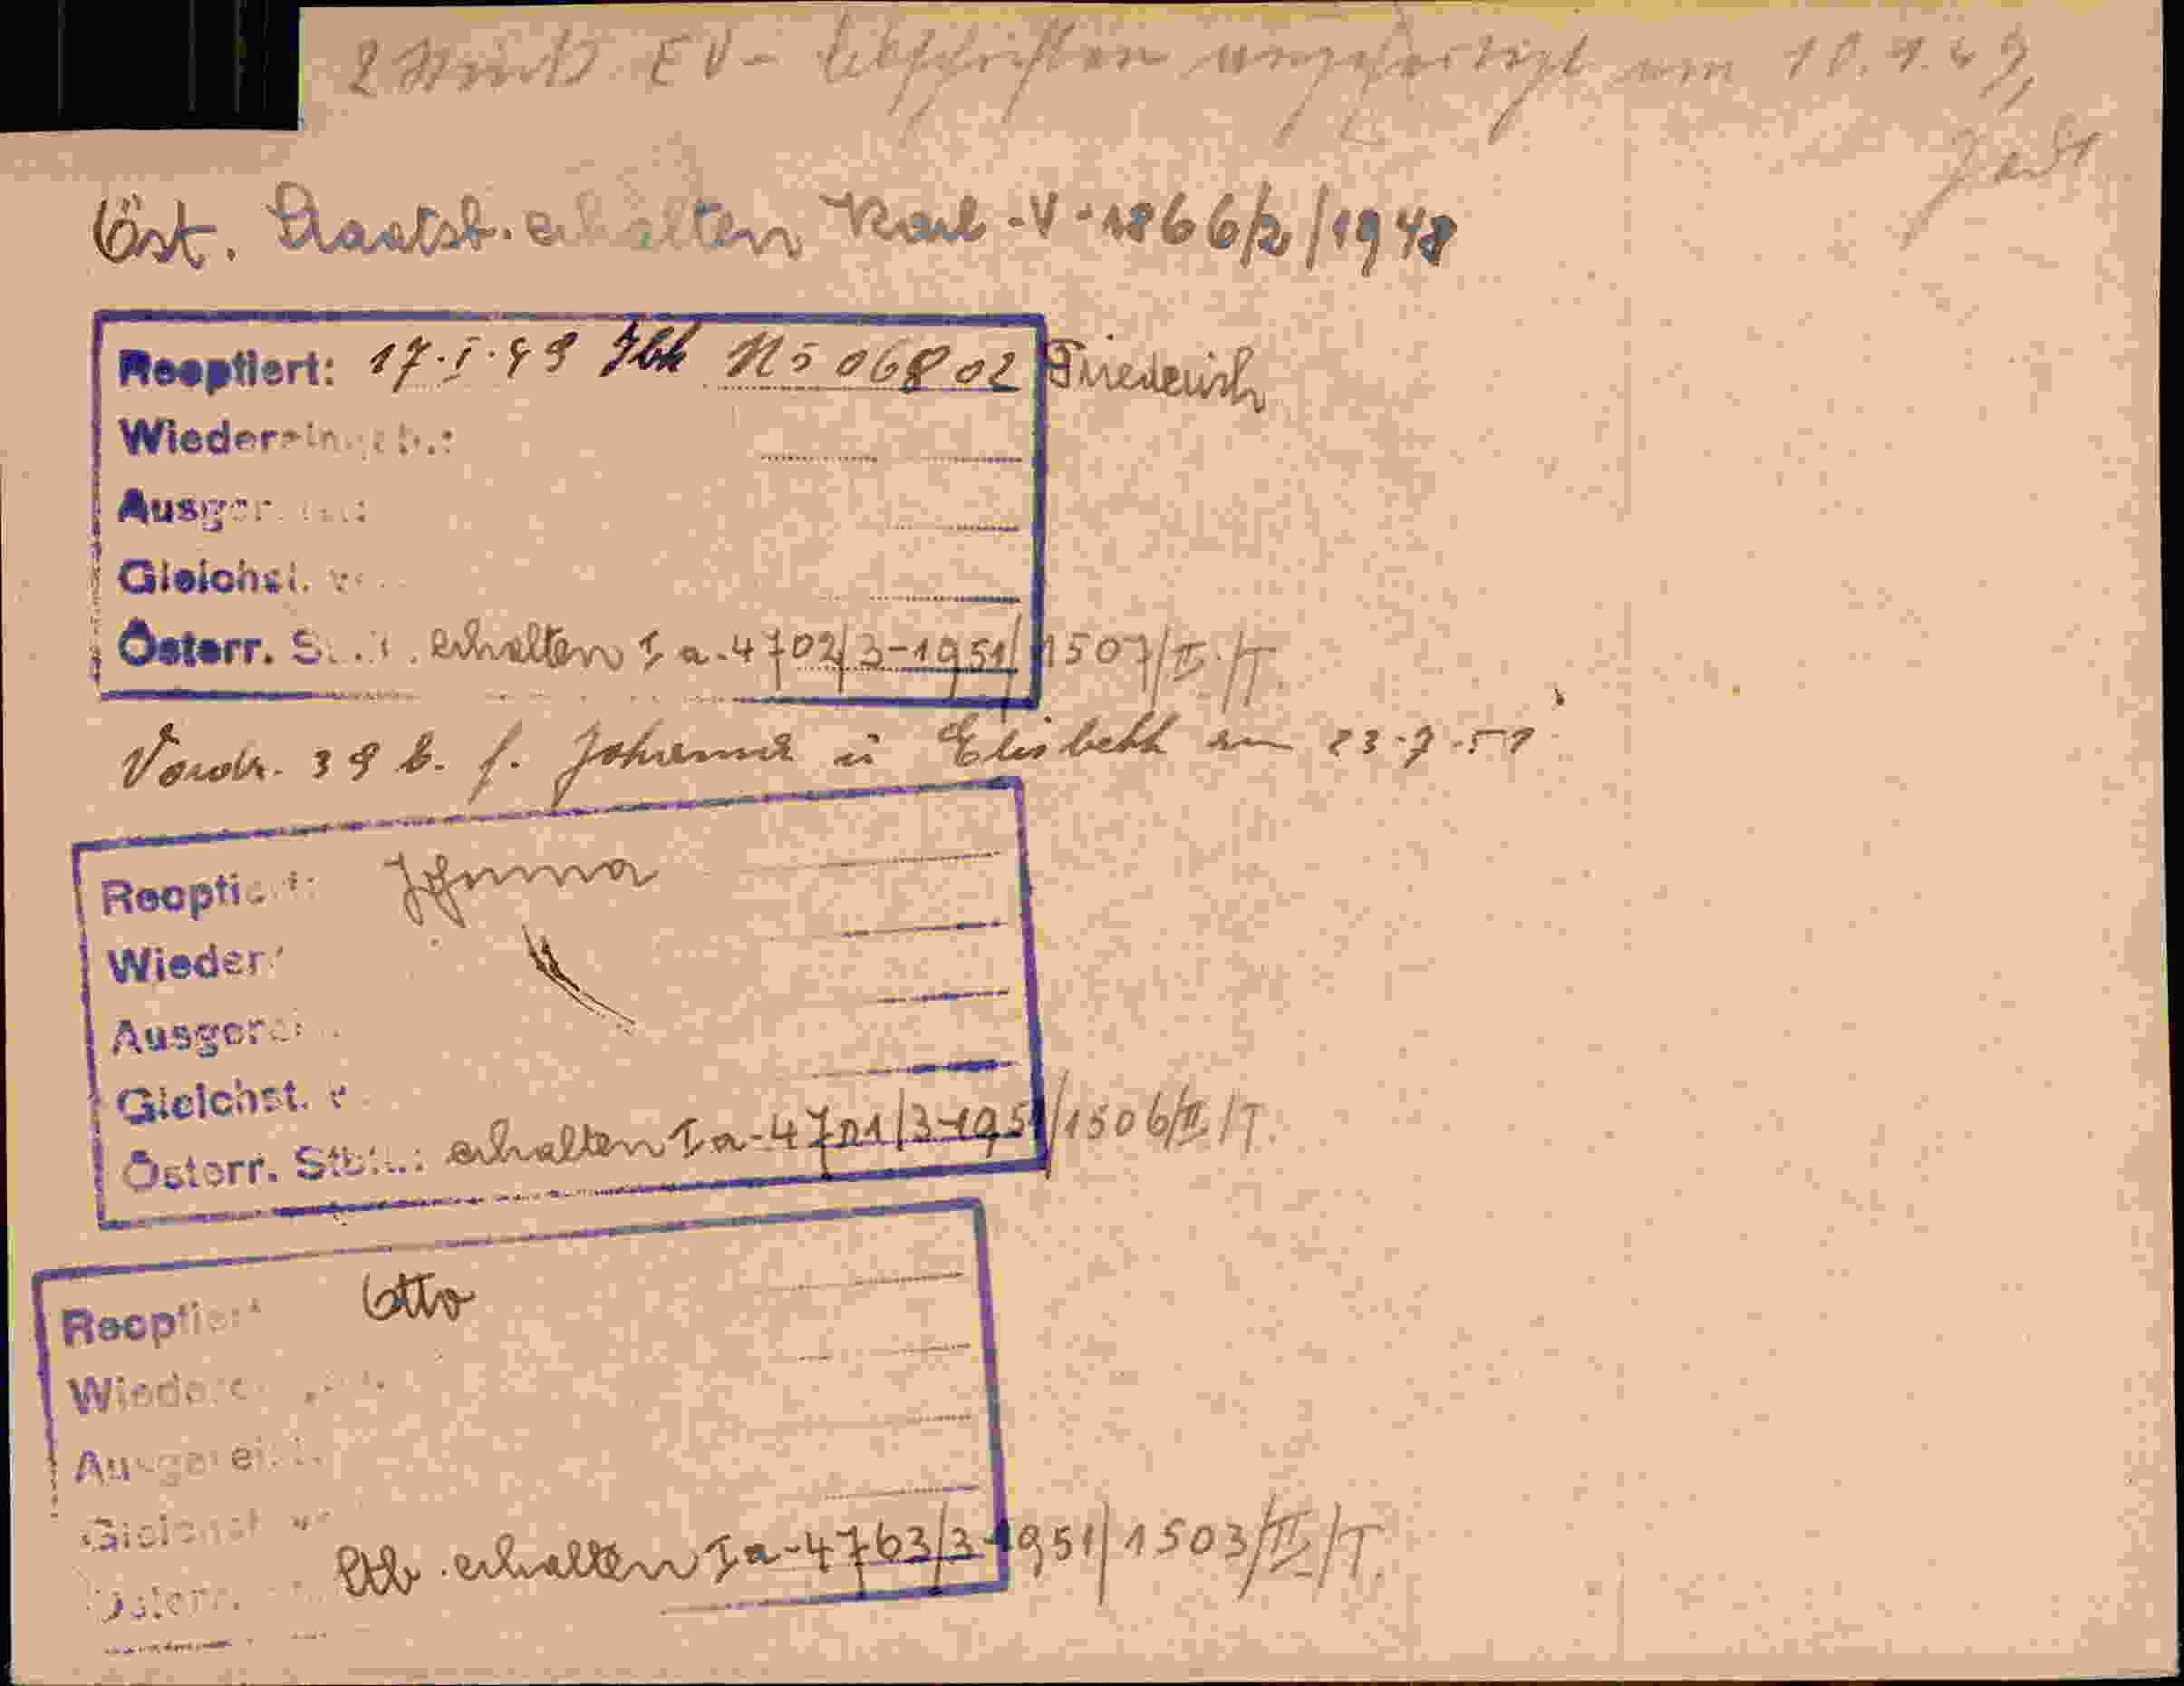 2 Stück EV- Abschriften ausgefertigt am 10.1.49,
Öst. Staatsb. erhalten Karl -V-1866/2/1948
Reoptiert: 17.I.49 No 06802 Friederich
Wieder
Ausger
Gleichst.
Österr. erhalten Ia-4702/3-1951/1507/II./T.
Vordr. 39 b. f. Johanna u Elisbeth am 23.7.51
Reoptiert: Johanna
Wieder
Ausgere
Gleichst. v
Österr. Stb.: erhalten Ia-4701/3-1951/1506/II/T.
Reoptiert Otto
Wieder
Ausgerei
Gleichst
Österr. Stb. erhalten Ia-4763/3-1951/1503/II/T.